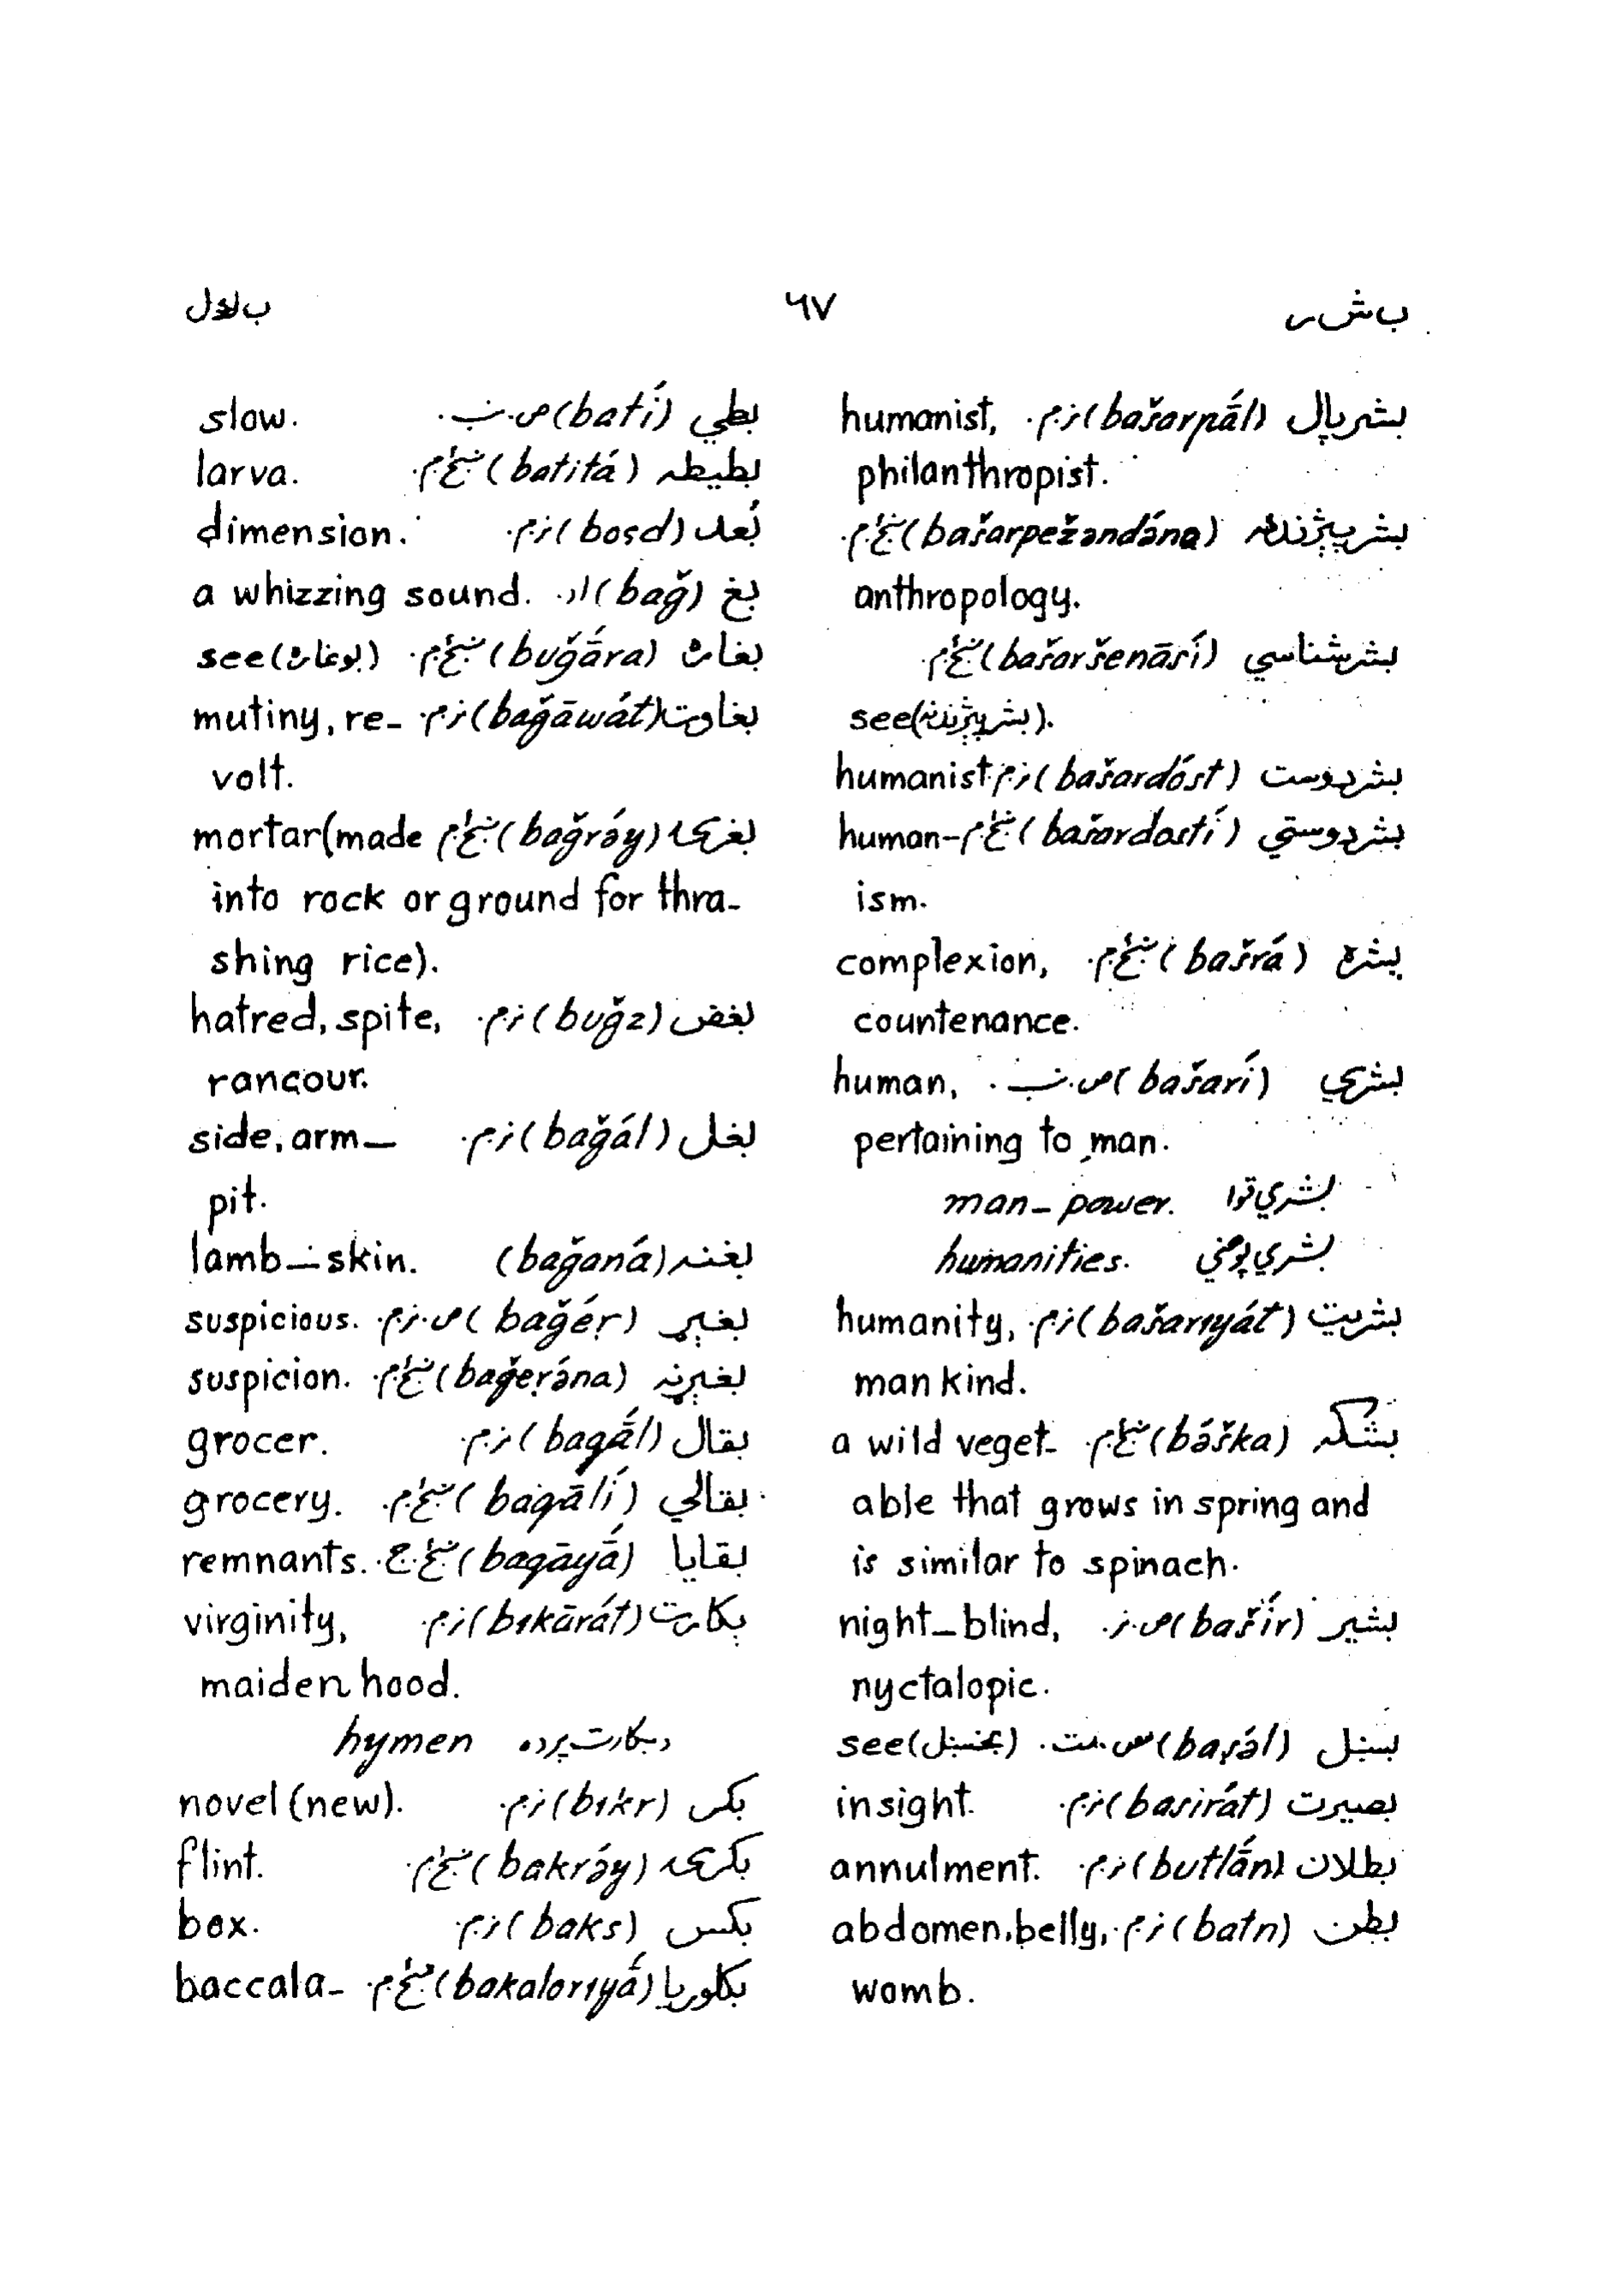 ب ش ر ٦٧ ب ک ل
بشرپال (bašarpā́l) ن.م. humanist,
philanthropist.
بشرپېژندنه (bašarpežəndə́na) ښځ.م.
anthropology.
بشرشناسي (bašaršenāsí) ښځ.م.
see(بشرپېژندنه).
بشردوست (bašardóst) ن.م. humanist
بشردوستي (bašardostí) ښځ.م. human-
ism.
بشره (bašrá) ښځ.م. complexion,
countenance.
بشري (bašarí) ص.نب. human,
pertaining to man.
بشري قوا man-power.
بشري پوهني humanities.
بشريت (bašarıyát) ن.م. humanity,
mankind.
بشکه (bə́ška) ښځ.م. a wild veget-
able that grows in spring and
is similar to spinach.
بشير (bašír) ص.ن. night-blind,
nyctalopic.
(baṣə́l) see
بصيرت (basirát) ن.م. insight.
بطلان (butlā́n) ن.م. annulment.
بطن (batn) ن.م. abdomen, belly,
womb.
بطي (batí) ص.نب. slow.
بطيطه (batitá) ښځ.م. larva.
بُعد (boçd) ن.م. dimension.
بغ (bağ) ا.د. a whizzing sound.
بغاره (buğā́ra) ښځ.م. see(بوغاره)
بغاوت (bağāwát) ن.م. mutiny, re-
volt.
بغرۍ (bağrə́y) ښځ.م. mortar(made
into rock or ground for thra-
shing rice).
بغض (buğz) ن.م. hatred, spite,
rancour.
بغل (bağál) ن.م. side, arm-
pit.
بغنه (bağaná) lamb-skin.
بغېړ (bağéṛ) ص.ن.م. suspicious.
بغېړنه (bağeṛə́na) ښځ.م. suspicion.
بقال (baqā́l) ن.م. grocer.
بقالي (baqālí) ښځ.م. grocery.
بقايا (baqāyā́) ښځ.ج. remnants.
بکارت (bıkārát) ن.م. virginity,
maidenhood.
دبکارت پرده hymen
بکر (bıkr) ن.م. novel (new).
بکرۍ (bakrə́y) ښځ.م. flint.
بکس (baks) ن.م. box.
بکلوريا (bakalorıyā́) ښځ.م. baccala-